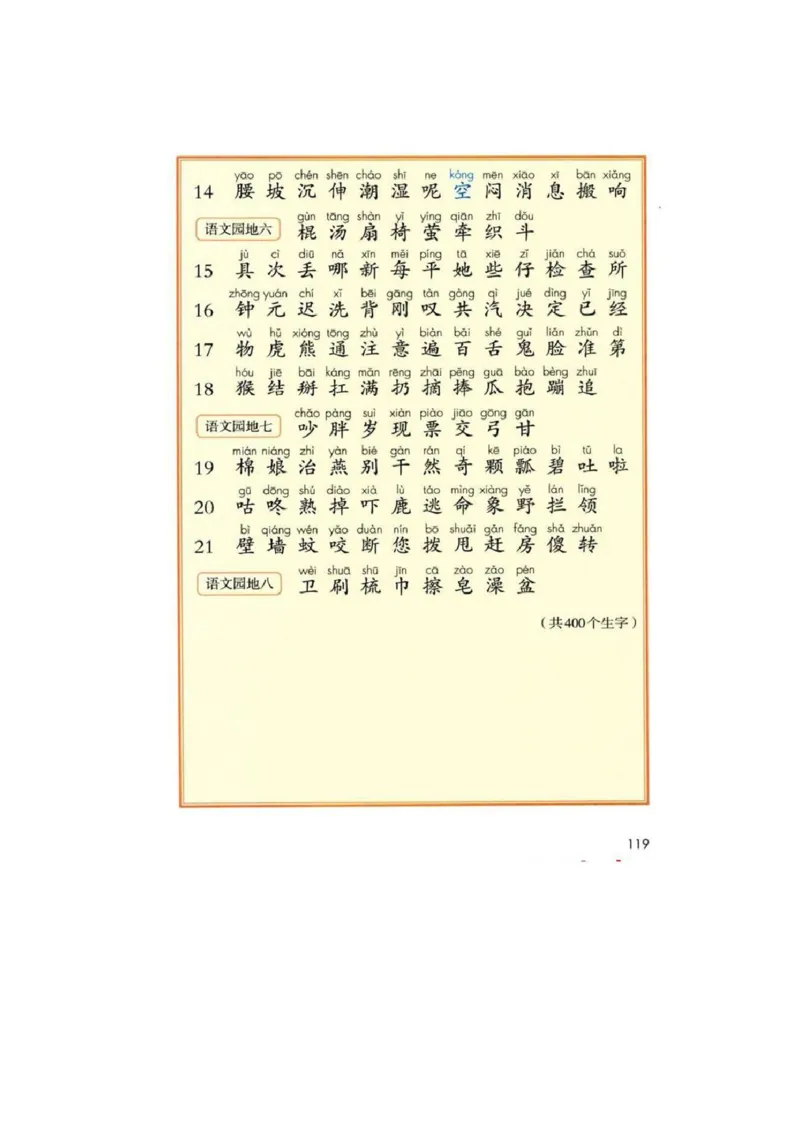 yāo pō chén shēn cháo shī ne kōng mēn xiāo xī bān xiǎng
14 腰 坡 沉 伸 潮 湿 呢 空 闷 消 息 搬 响
gùn tāng shàn yǐ yíng qiān zhī dǒu
语文园地六 棍 汤 扇 椅 萤 牵 织 斗
jù cì diū nǎ xīn měi píng tā xiē zǐ jiǎn chá suǒ
15 具 次 丢 哪 新 每 平 她 些 仔 检 查 所
zhōng yuán chí xǐ bēi gāng tàn gòng qì jué dìng yǐ jīng
16 钟 元 迟 洗 背 刚 叹 共 汽 决 定 已 经
wù hǔ xióng tōng zhù yì biàn bǎi shé guǐ liǎn zhǔn dì
17 物 虎 熊 通 注 意 遍 百 舌 鬼 脸 准 第
hóu jiē bāi káng mǎn rēng zhāi pěng guā bào bèng zhuī
18 猴 结 掰 扛 满 扔 摘 捧 瓜 抱 蹦 追
chǎo pàng suì xiàn piào jiāo gōng gān
语文园地七 吵 胖 岁 现 票 交 弓 甘
mián niáng zhì yàn bié gàn rán qí kē piáo bì tǔ la
19 棉 娘 治 燕 别 干 然 奇 颗 瓢 碧 吐 啦
gū dōng shú diào xià lù táo mìng xiàng yě lán lǐng
20 咕 咚 熟 掉 吓 鹿 逃 命 象 野 拦 领
bì qiáng wén yǎo duàn nín bō shuǎi gǎn fáng shǎ zhuǎn
21 壁 墙 蚊 咬 断 您 拨 甩 赶 房 傻 转
wèi shuā shū jīn cā zào zǎo pén
语文园地八 卫 刷 梳 巾 擦 皂 澡 盆
（共400个生字）
119